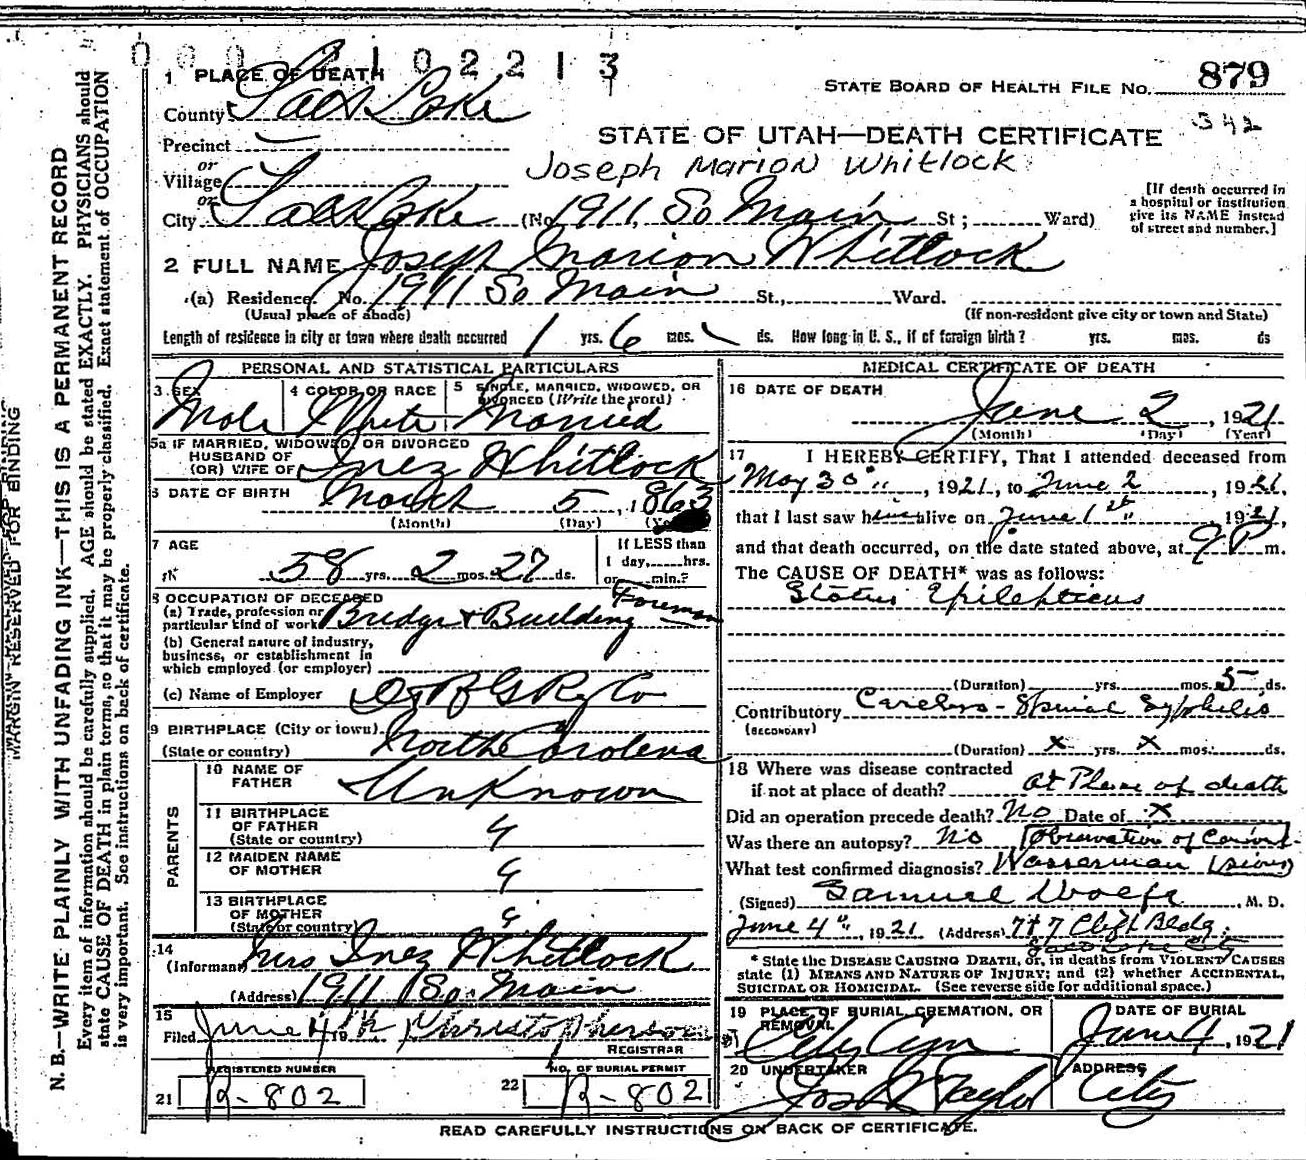 0 0 0 2 1 0 2 2 1 3
1 PLACE OF DEATH
STATE BOARD OF HEALTH FILE NO. 879
County Salt Lake
342
STATE OF UTAH—DEATH CERTIFICATE
Precinct
or
Village
Joseph Marion Whitlock
or
City Salt Lake (No. 1911 So Main St; Ward)
[If death occurred in
a hospital or institution
give its NAME instead
of street and number.]
2 FULL NAME Joseph Marion Whitlock
(a) Residence. No. 1911 So Main St., Ward.
(Usual place of abode)
(If non-resident give city or town and State)
Length of residence in city or town where death occurred 1 yrs. 6 mos. ds. How long in U. S., if of foreign birth? yrs. mos. ds
PERSONAL AND STATISTICAL PARTICULARS
3 SEX
Male
4 COLOR OR RACE
White
5 SINGLE, MARRIED, WIDOWED, OR
DIVORCED (Write the word)
Married
5a IF MARRIED, WIDOWED, OR DIVORCED
HUSBAND OF
(OR) WIFE OF Inez Whitlock
6 DATE OF BIRTH March 5, 1863
(Month) (Day) (Year)
7 AGE
58 yrs. 2 mos. 27 ds.
If LESS than
1 day, hrs.
or min.?
8 OCCUPATION OF DECEASED
(a) Trade, profession or
particular kind of work Bridge & Building Foreman
(b) General nature of industry,
business, or establishment in
which employed (or employer)
(c) Name of Employer D & R G Ry Co
9 BIRTHPLACE (City or town)
(State or country) North Carolena
PARENTS
10 NAME OF
FATHER Unknown
11 BIRTHPLACE
OF FATHER
(State or country)
12 MAIDEN NAME
OF MOTHER
13 BIRTHPLACE
OF MOTHER
(State or country)
14
(Informant) Mrs Inez Whitlock
(Address) 1911 So. Main
15
Filed June 4 19 Christopherson
REGISTRAR
REGISTERED NUMBER
21 R-802
NO. OF BURIAL PERMIT
22 R-802
MEDICAL CERTIFICATE OF DEATH
16 DATE OF DEATH
June 2, 1921
(Month) (Day) (Year)
17 I HEREBY CERTIFY, That I attended deceased from
May 30", 1921, to June 2, 1921,
that I last saw him alive on June 1st, 1921,
and that death occurred, on the date stated above, at 9 P m.
The CAUSE OF DEATH* was as follows:
Status Epilepticus
(Duration) yrs. mos. 5 ds.
Contributory Cerebro-Spinal Syphilis
(SECONDARY)
(Duration) x yrs. x mos. ds.
18 Where was disease contracted
if not at place of death? At Place of death
Did an operation precede death? No Date of x
Was there an autopsy? No Observation of
What test confirmed diagnosis? Wasserman
(Signed) Samuel Wolfe, M. D.
June 4", 1921 (Address) 747 Clift Bldg.
Salt Lake City
* State the DISEASE CAUSING DEATH, or, in deaths from VIOLENT CAUSES
state (1) MEANS AND NATURE OF INJURY; and (2) whether ACCIDENTAL,
SUICIDAL OR HOMICIDAL. (See reverse side for additional space.)
19 PLACE OF BURIAL, CREMATION, OR
REMOVAL
City Cem
DATE OF BURIAL
June 4, 1921
20 UNDERTAKER
Jos Wm Taylor
ADDRESS
City
READ CAREFULLY INSTRUCTIONS ON BACK OF CERTIFICATE.
MARGIN RESERVED FOR BINDING
N. B.—WRITE PLAINLY WITH UNFADING INK—THIS IS A PERMANENT RECORD
Every item of information should be carefully supplied. AGE should be stated EXACTLY. PHYSICIANS should
state CAUSE OF DEATH in plain terms, so that it may be properly classified. Exact statement of OCCUPATION
is very important. See instructions on back of certificate.